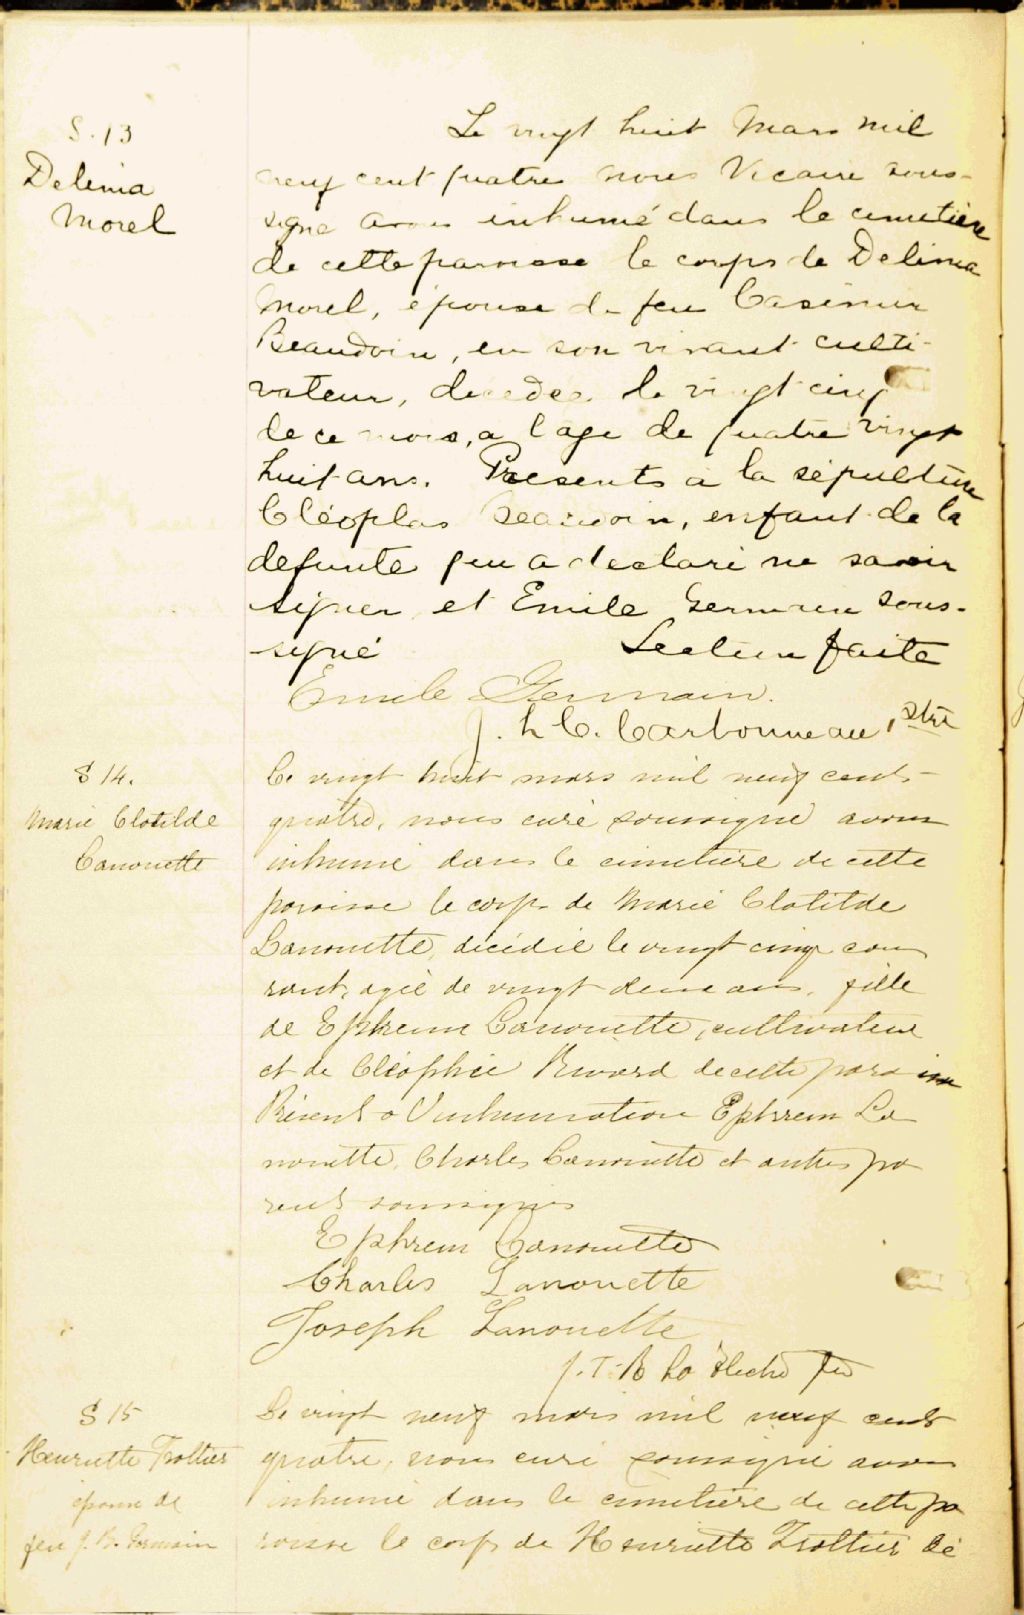 S. 13
Delima
Morel
Le vingt huit Mars mil
neuf cent quatre nous Vicaire sous-
signé avons inhumé dans le cimetière
de cette paroisse le corps de Delima
Morel, épouse de feu Casimir
Beaudoin, en son vivant culti-
vateur, décédée le vingt cinq
de ce mois, a l'age de quatre vingt
huit ans. Présents a la sépulture
Cléophas Beaudoin, enfant de la
defunte qui a declaré ne savoir
signer et Emile Germain sous-
signé Lecture faite
Emile Germain.
J. h C. Carbonneau, Ptre
S 14.
Marie Clotilde
Lanouette
Le vingt huit mars mil neuf cent
quatre, nous curé soussigné avons
inhumé dans le cimetière de cette
paroisse le corps de Marie Clotilde
Lanouette, décédée le vingt cinq cou
rant, agée de vingt deux ans, fille
de Ephrem Lanouette, cultivateur
et de Cléophée Rivard de cette paroisse
Présents a l'inhumation Ephrem La
nouette, Charles Lanouette et autres pa
rents soussignés
Ephrem Lanouette
Charles Lanouette
Joseph Lanouette
J. T. B La Flèche Ptre
S 15
Henriette Trottier
épouse de
feu J. B. Germain
Le vingt neuf mars mil neuf cent
quatre, nous curé soussigné avons
inhumé dans le cimetière de cette pa
roisse le corps de Henriette Trottier dé